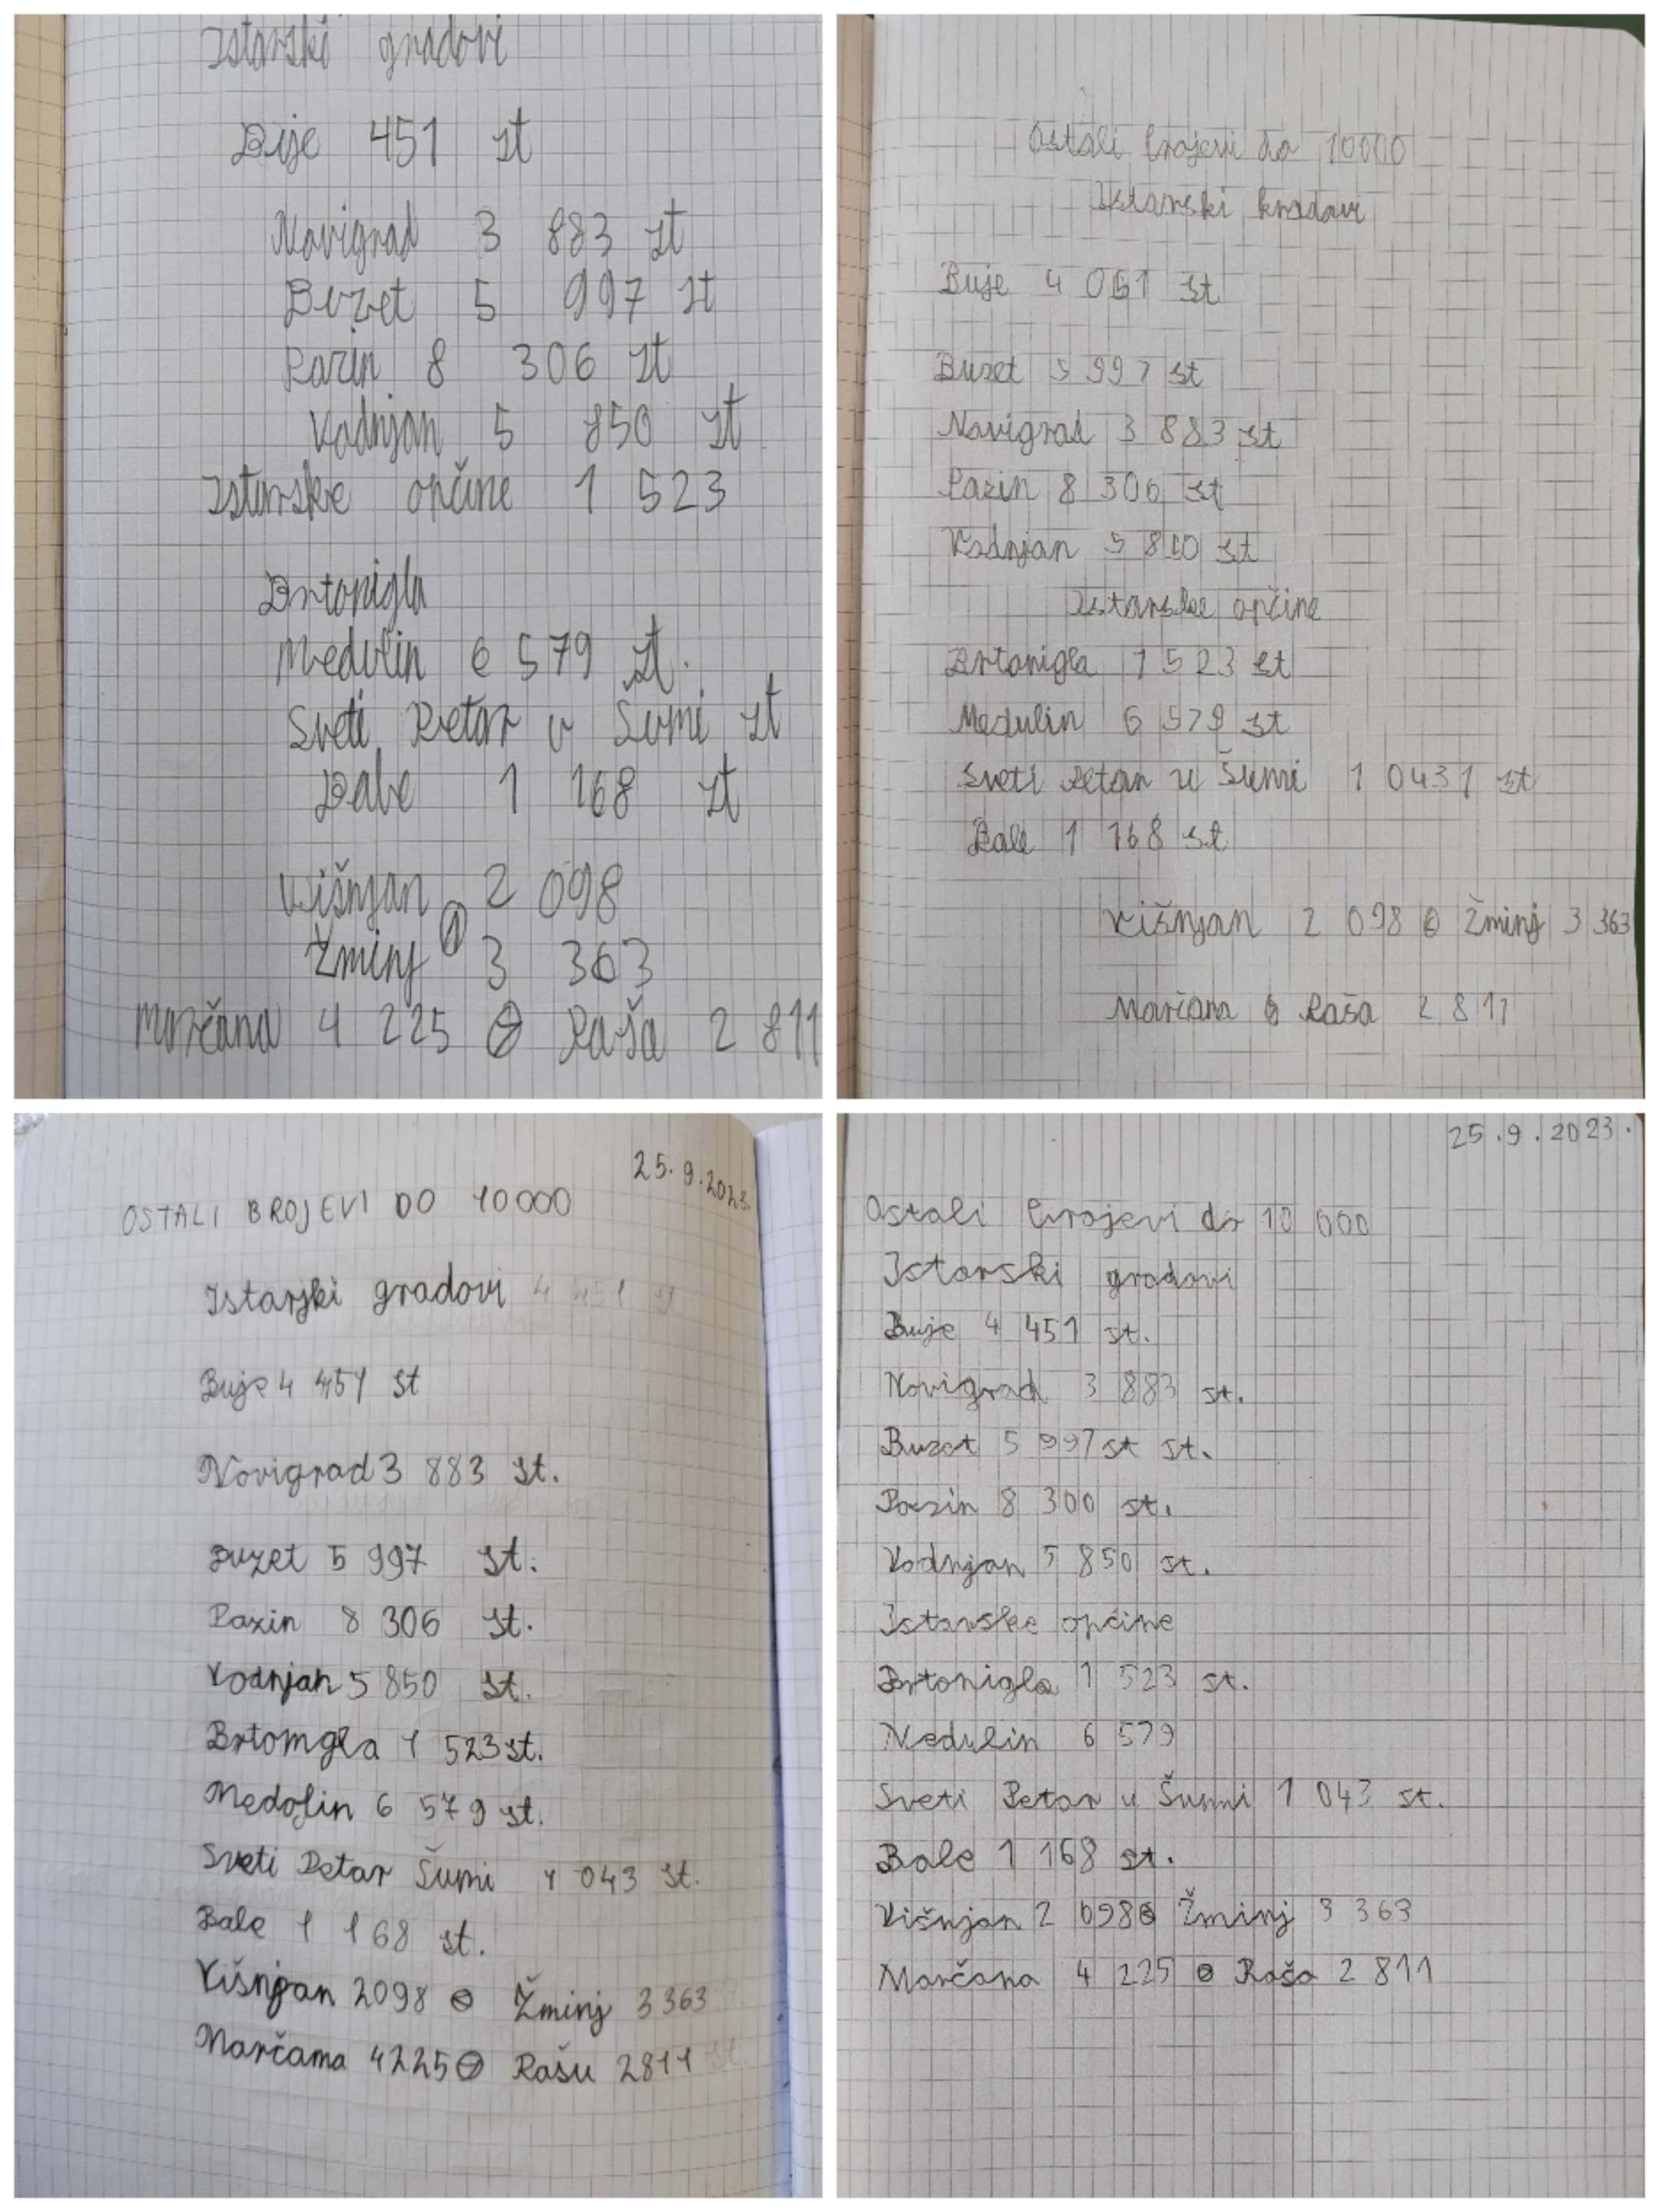 Istarski gradovi
Bije 451 st
Novigrad 3 883 st
Buzet 5 997 st
Pazin 8 306 st
Vodnjan 5 850 st
Istarske općine 1 523
Brtonigla
Medulin 6 579 st.
Sveti Petar u Šumi st
Bale 1 168 st
Višnjan 2 098
Žminj 3 363
Marčana 4 225 Raša 2 811
Ostali brojevi do 10000
Istarski kradovi
Buje 4 061 st
Buzet 5 997 st
Novigrad 3 883 st
Pazin 8 306 st
Vodnjan 5 810 st
Istarske općine
Brtonigla 1 523 st
Medulin 6 579 st
Sveti Petar u Šumi 1 0431 st
Bale 1 168 st
Višnjan 2 098 Žminj 3 363
Marčana Raša 2 811
25.9.2023.
OSTALI BROJEVI DO 10000
Istarski gradovi 4 451 st
Buje 4 451 st
Novigrad 3 883 st.
Buzet 5 997 st.
Pazin 8 306 st.
Vodnjan 5 850 st.
Brtomgla 1 523 st.
Medolin 6 579 st.
Sveti Petar Šumi 1 043 st.
Bale 1 168 st.
Višnjan 2098 Žminj 3363
Marčama 4225 Rašu 2811 st.
25.9.2023.
Ostali brojevi do 10 000
Istarski gradovi
Buje 4 451 st.
Novigrad 3 883 st.
Buzet 5 997 st st.
Pazin 8 300 st.
Vodnjan 5 850 st.
Istarske općine
Brtonigla 1 523 st.
Nedulin 6 579
Sveti Petar u Šumi 1 043 st.
Bale 1 168 st.
Višnjan 2 098 Žminj 3 363
Marčana 4 225 Raša 2 811